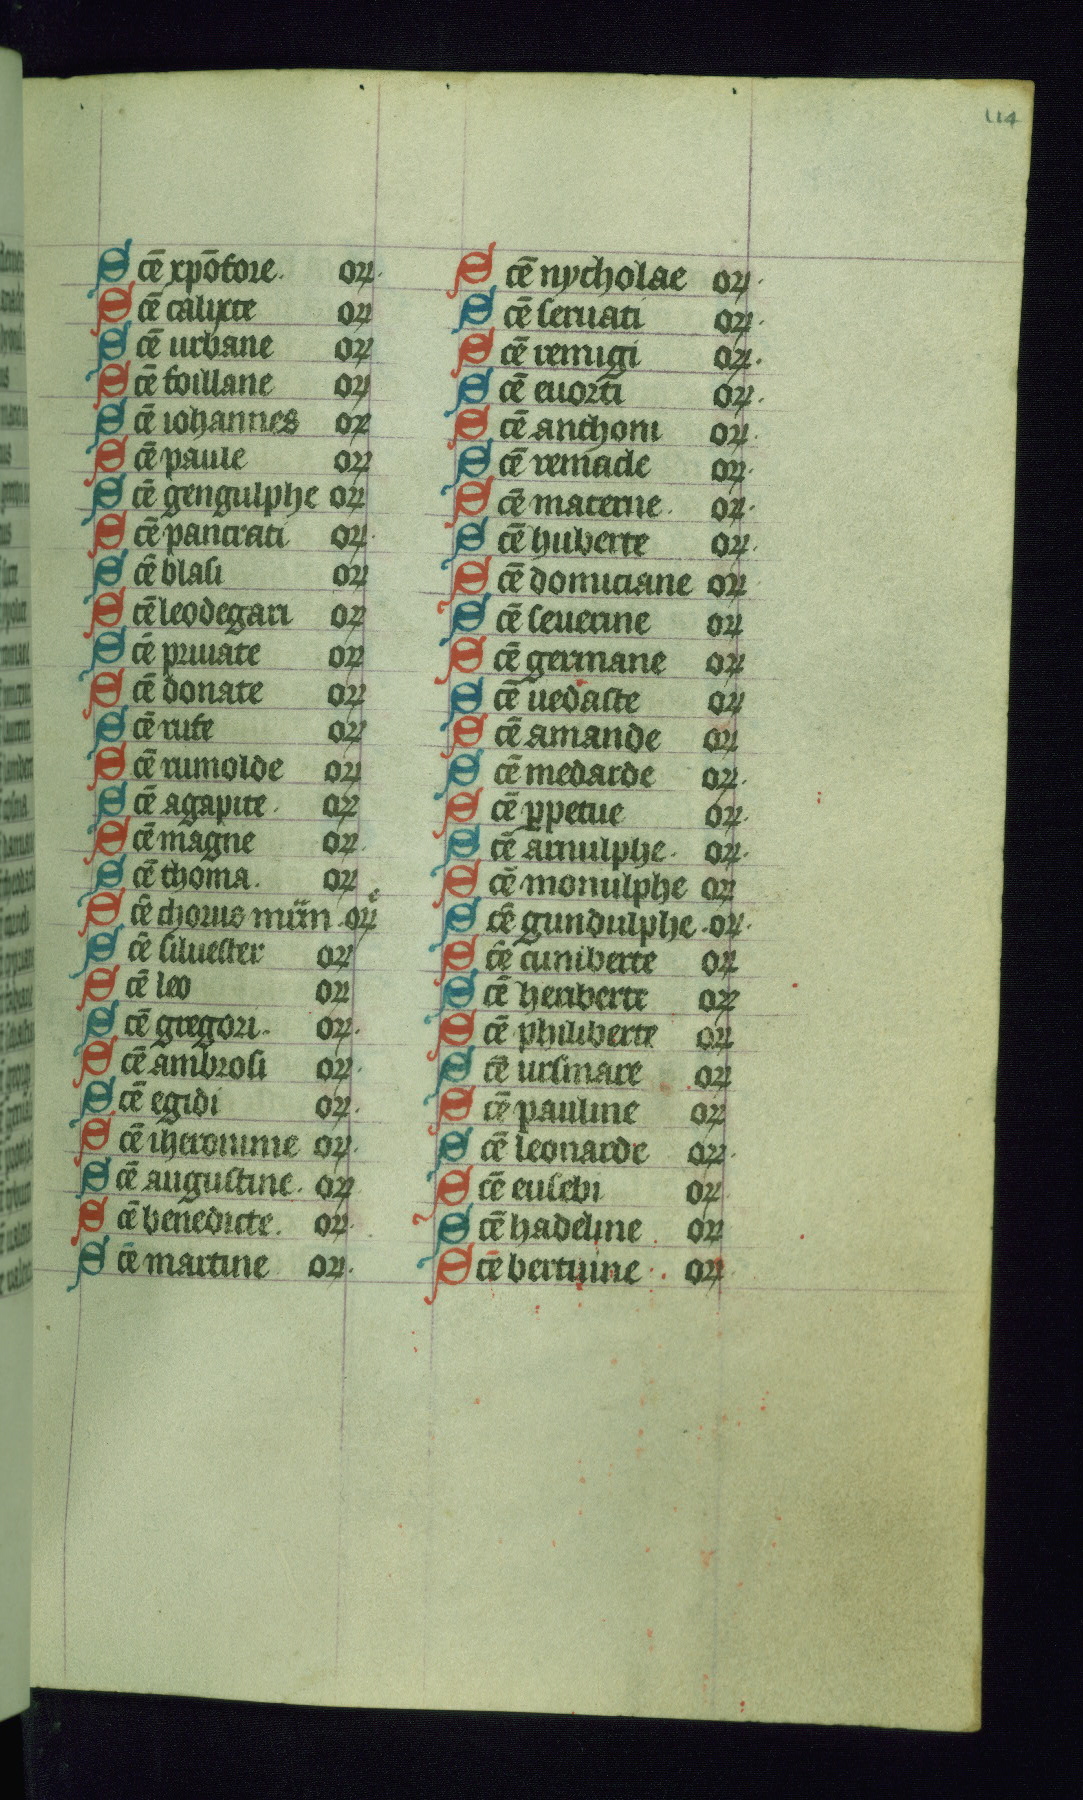 114
Scē xpōfore. or
Scē calixte or
Scē urbane or
Scē foillane or
Scē iohannes or
Scē paule or
Scē gengulphe or
Scē pancrati or
Scē blasi or
Scē leodegari or
Scē priuate or
Scē donate or
Scē rufe or
Scē rumolde or
Scē agapite. or
Scē magne or
Scē thoma. or
Scē chorus or
Scē siluester or
Scē leo or
Scē gregori. or
Scē ambrosi or
Scē egidi or
Scē iheronime or
Scē augustine. or
Scē benedicte. or
Scē martine or.
Scē nycholae or.
Scē seruati or.
Scē remigi or.
Scē euorti or.
Scē anthoni or.
Scē remacle or.
Scē materne. or.
Scē huberte or.
Scē domiciane or
Scē seuerine or
Scē germane or
Scē uedaste or
Scē amande or
Scē medarde or.
Scē ꝑpetue or.
Scē arnulphe. or.
Scē monulphe or
Scē gundulphe. or.
Scē cuniberte or
Scē heriberte or
Scē philiberte or
Scē ursmare or
Scē pauline or
Scē leonarde or.
Scē eusebi or
Scē hadeline or
Scē bertuine. or